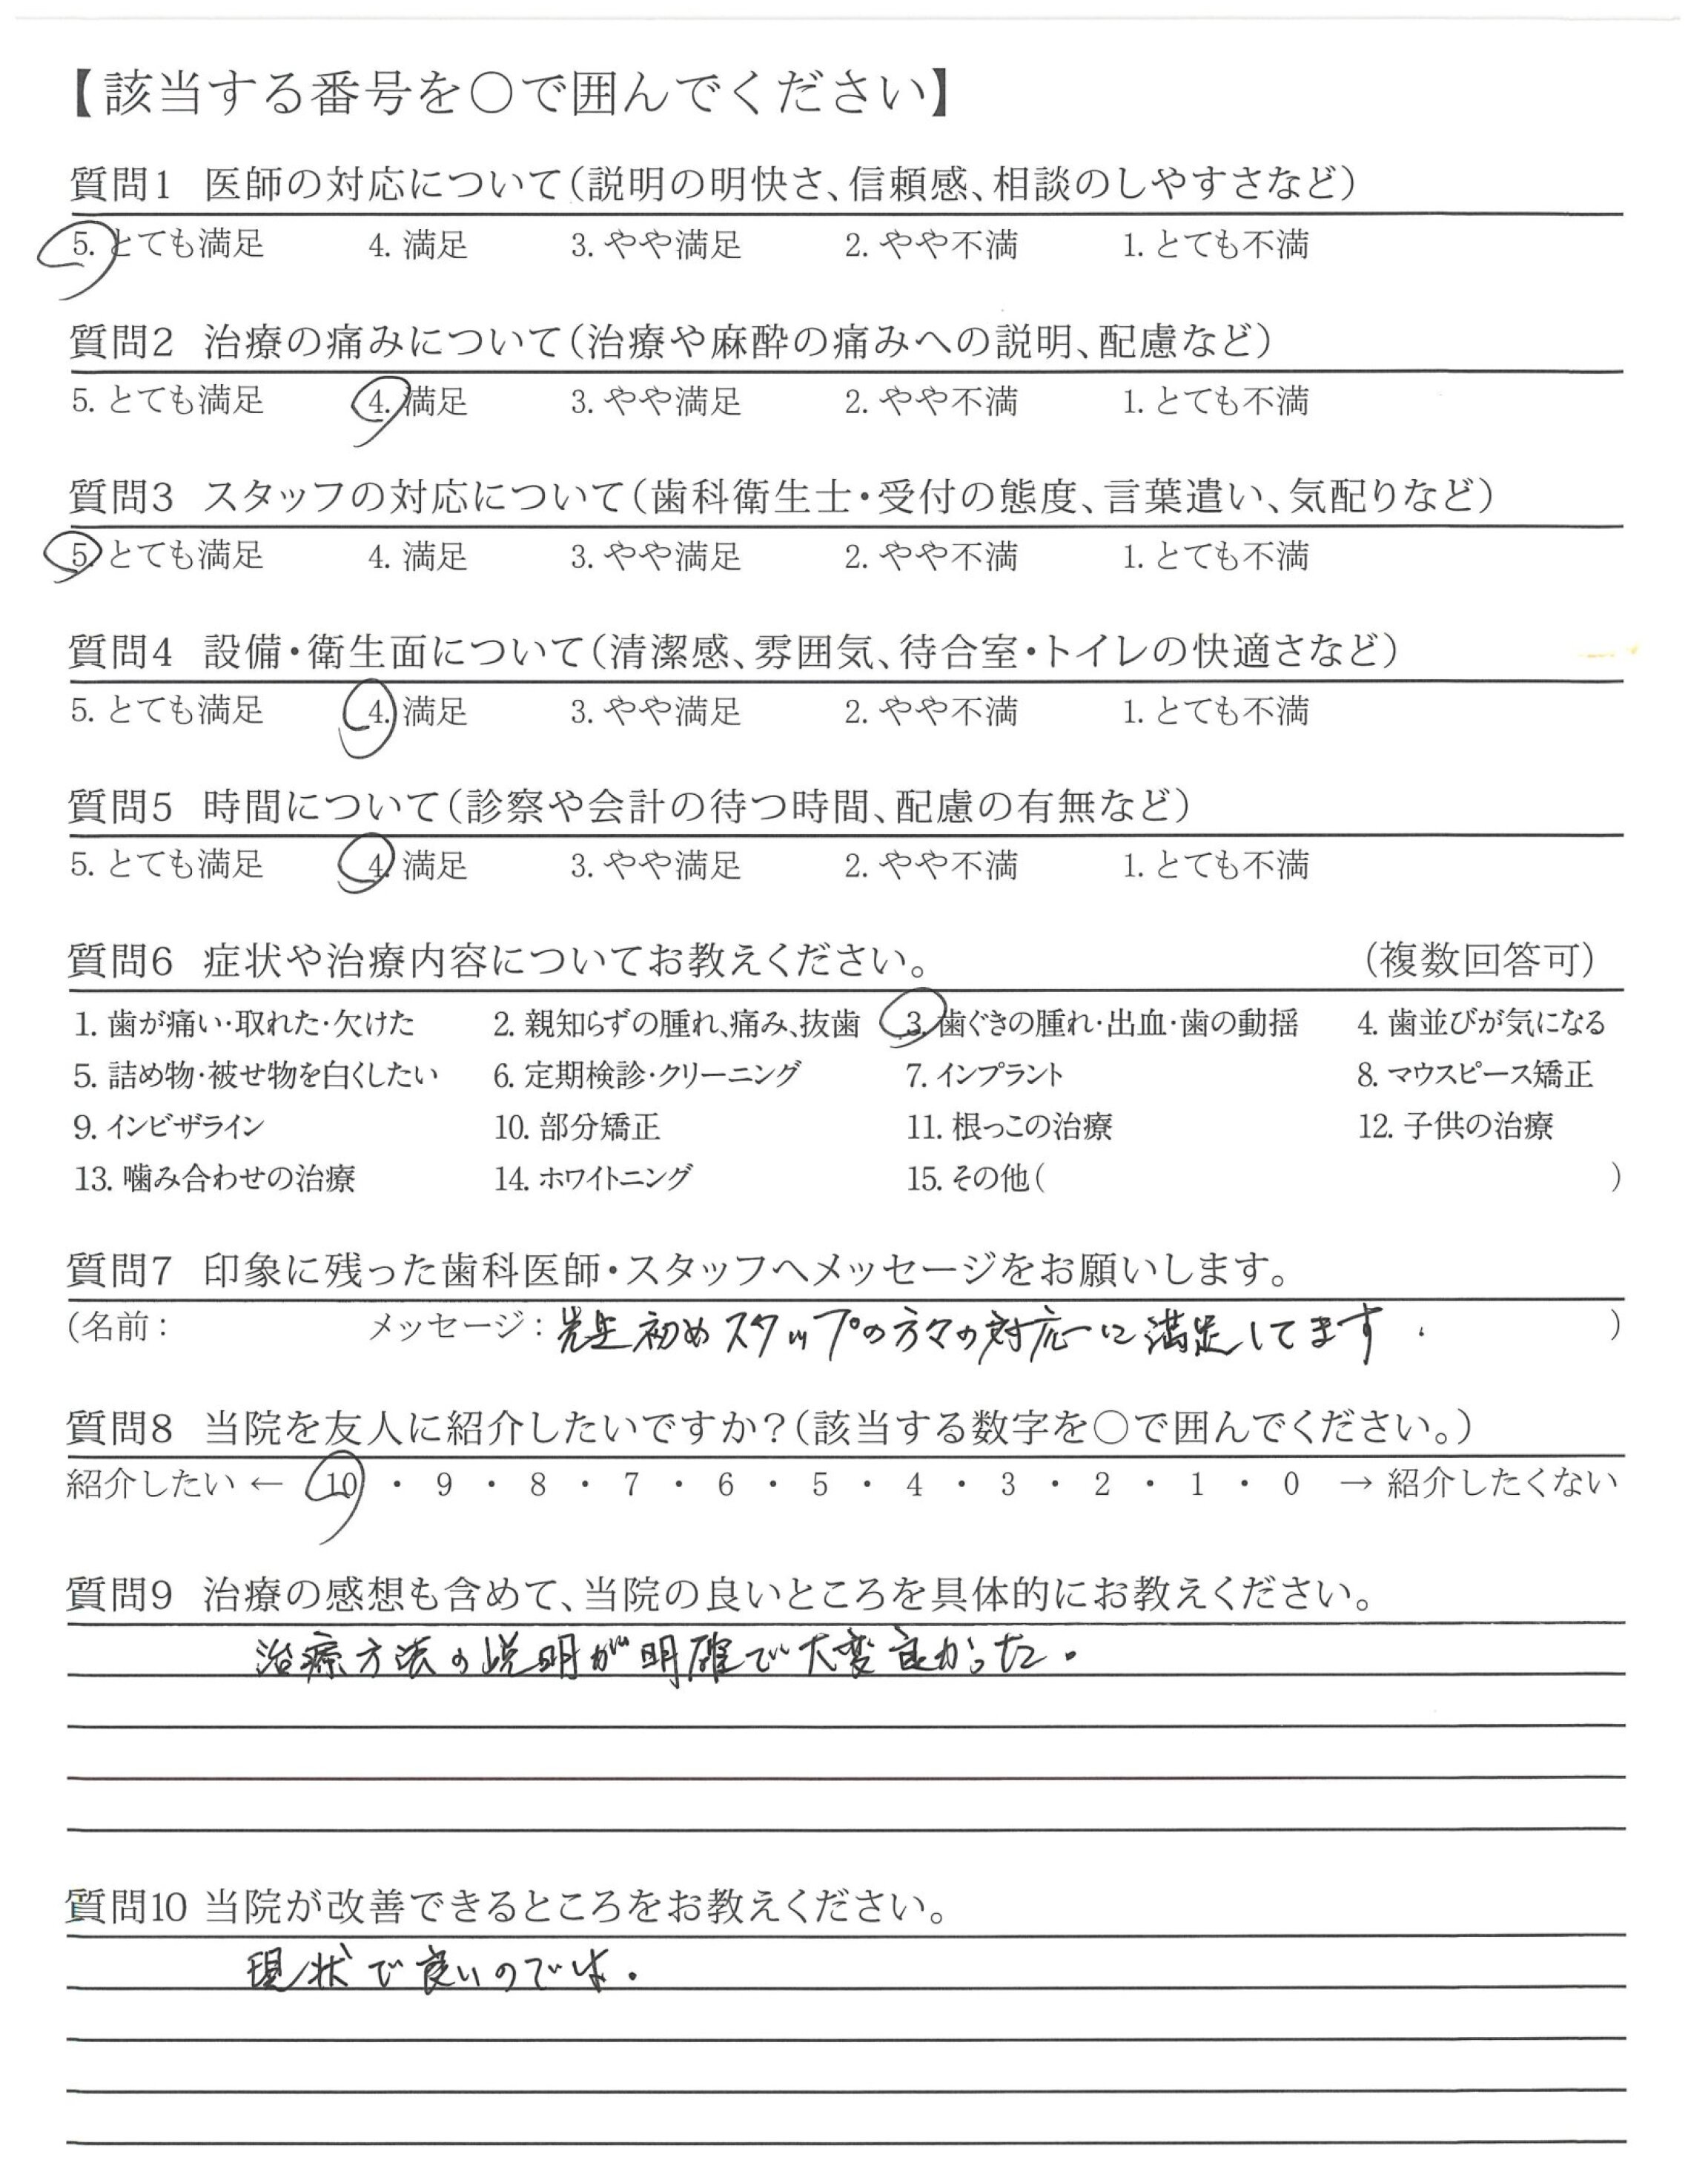 【該当する番号を○で囲んでください】
質問1 医師の対応について(説明の明快さ、信頼感、相談のしやすさなど)
5. とても満足 4. 満足 3. やや満足 2. やや不満 1. とても不満
質問2 治療の痛みについて(治療や麻酔の痛みへの説明、配慮など)
5. とても満足 4. 満足 3. やや満足 2. やや不満 1. とても不満
質問3 スタッフの対応について(歯科衛生士・受付の態度、言葉遣い、気配りなど)
5. とても満足 4. 満足 3. やや満足 2. やや不満 1. とても不満
質問4 設備・衛生面について(清潔感、雰囲気、待合室・トイレの快適さなど)
5. とても満足 4. 満足 3. やや満足 2. やや不満 1. とても不満
質問5 時間について(診察や会計の待つ時間、配慮の有無など)
5. とても満足 4. 満足 3. やや満足 2. やや不満 1. とても不満
質問6 症状や治療内容についてお教えください。 (複数回答可)
1. 歯が痛い・取れた・欠けた 2. 親知らずの腫れ、痛み、抜歯 3. 歯ぐきの腫れ・出血・歯の動揺 4. 歯並びが気になる
5. 詰め物・被せ物を白くしたい 6. 定期検診・クリーニング 7. インプラント 8. マウスピース矯正
9. インビザライン 10. 部分矯正 11. 根っこの治療 12. 子供の治療
13. 噛み合わせの治療 14. ホワイトニング 15. その他( )
質問7 印象に残った歯科医師・スタッフへメッセージをお願いします。
(名前: メッセージ: 先生初めスタップの方々の対応に満足してます. )
質問8 当院を友人に紹介したいですか?(該当する数字を○で囲んでください。)
紹介したい ← 10 ・ 9 ・ 8 ・ 7 ・ 6 ・ 5 ・ 4 ・ 3 ・ 2 ・ 1 ・ 0 → 紹介したくない
質問9 治療の感想も含めて、当院の良いところを具体的にお教えください。
治療方法の説明が明確で大変良かった.
質問10 当院が改善できるところをお教えください。
現状で良いのでは.